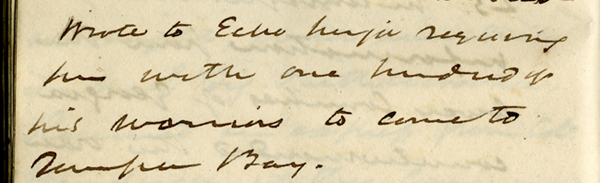 Wrote to Echo hargo requiring
him with one hundred of
his warriors to come to
Tampa Bay.